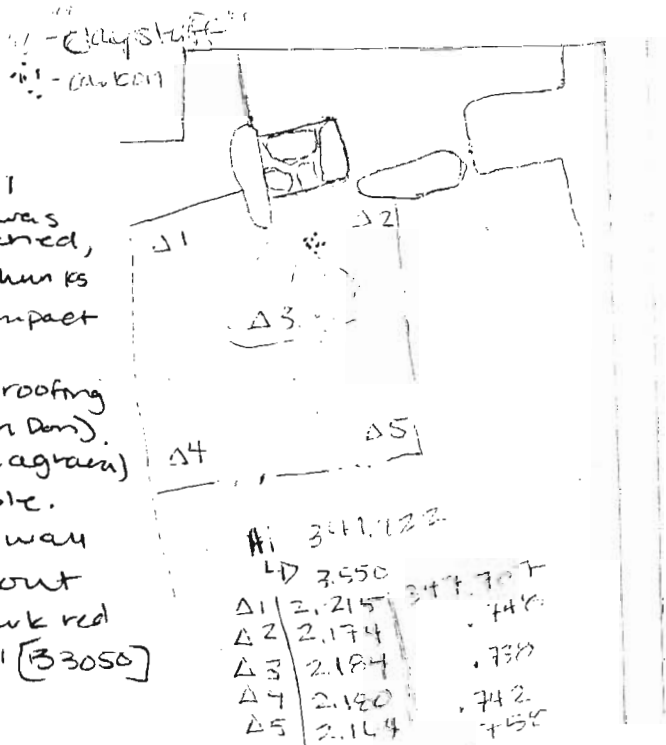 - "clay stuff"
- carbon
was
hunks
mpact
roofing
n Dan).
agram)
wall
out
rk red
[B3050]
Δ1
Δ2
Δ3
Δ4
Δ5
Hi 349.922
3.550
Δ1 2.215 347.707
Δ2 2.174 .748
Δ3 2.184 .738
Δ4 2.180 .742
Δ5 2.164 .758